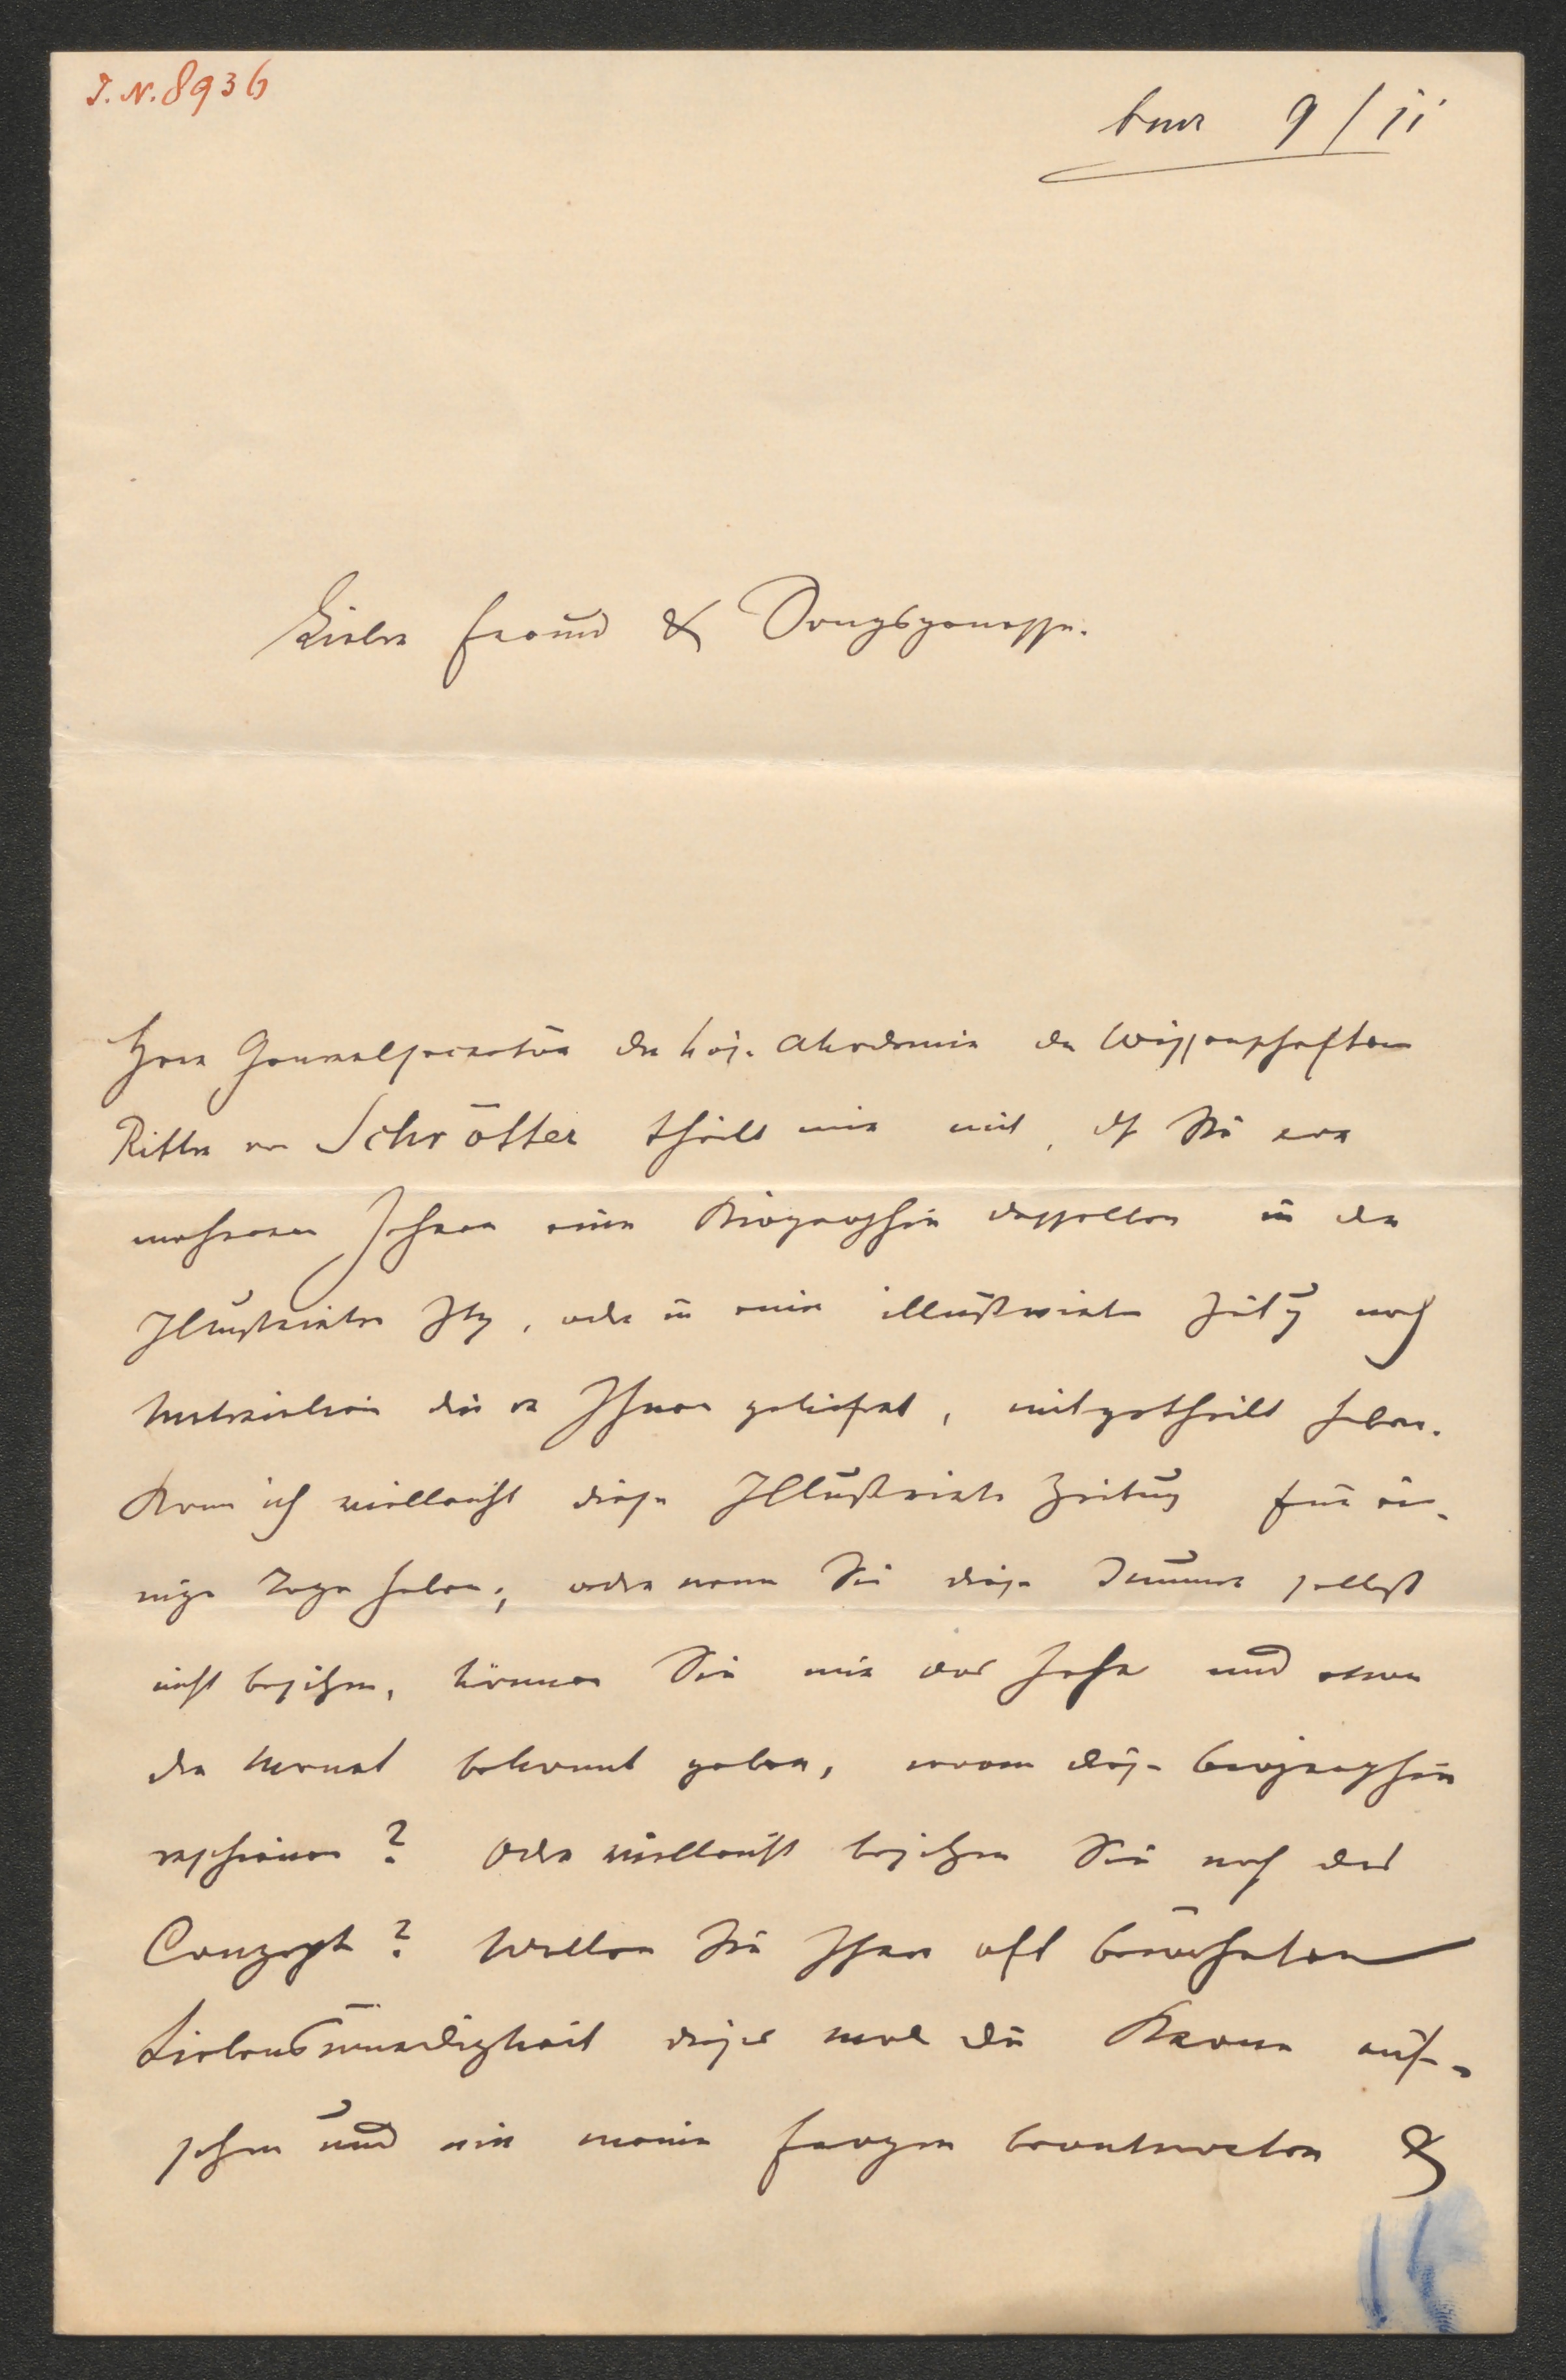 I. N. 8936
9/11
Lieber Freund & Sangsgenosse.
Herr Generalsecretär der kais. Akademie der Wissenschaften
Ritter von Schrötter theilt mir mit, dß Sie vor
mehreren Jahren eine Biographie desselben in der
Illustrirten Ztg, oder in einer illustrirten Zeitg nach
Materialien die er Ihnen geliefert, mitgetheilt haben.
Kann ich vielleicht diese Illustrirte Zeitung für ei-
nige Tage haben; oder wenn Sie diese Nummer selbst
nicht besitzen, können Sie mir das Jahr und etwa
den Monat bekannt geben, wann diese Biographie
erschienen? Oder vielleicht besitzen Sie noch das
Conzept? Wollen Sie Ihrer oft bewährten
Liebenswürdigkeit dieses mal die Krone auf-
setzen und mir meine Fragen beantworten &